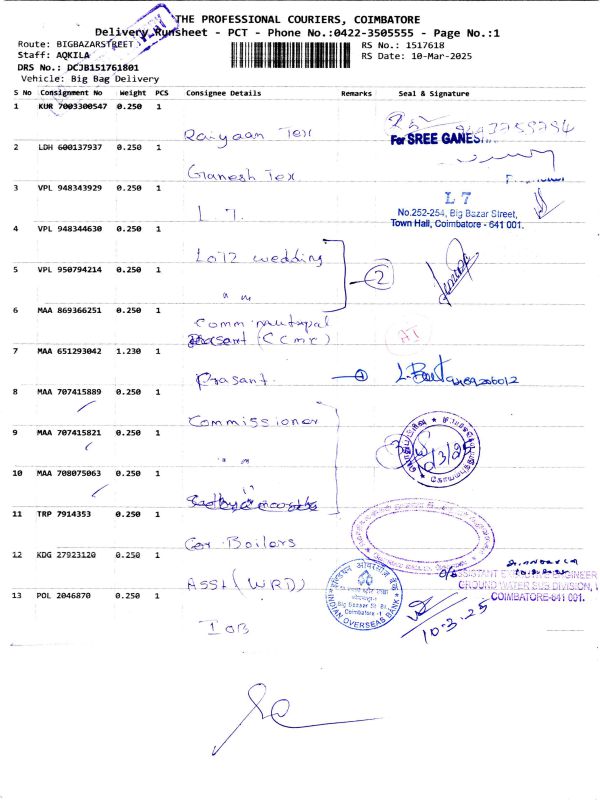 THE PROFESSIONAL COURIERS, COIMBATORE
Delivery Runsheet - PCT - Phone No.:0422-3505555 - Page No.:1
Route: BIGBAZARSTREET
RS No.: 1517618
Staff: AQKILA
RS Date: 10-Mar-2025
DRS No.: DCJB151761801
Vehicle: Big Bag Delivery
S No Consignment No Weight PCS Consignee Details Remarks Seal & Signature
1 KUR 7003300547 0.250 1
Raiyaan Tex
For SREE GANES
2 LDH 600137937 0.250 1
Ganesh Tex
3 VPL 948343929 0.250 1
L 7
L 7
No.252-254, Big Bazar Street,
Town Hall, Coimbatore - 641 001.
4 VPL 948344630 0.250 1
wedding
2
5 VPL 950794214 0.250 1
" "
6 MAA 869366251 0.250 1
(CCMC)
7 MAA 651293042 1.230 1
Prasant
8 MAA 707415889 0.250 1
Commissioner
9 MAA 707415821 0.250 1
" "
10/3/25
10 MAA 708075063 0.250 1
11 TRP 7914353 0.250 1
Boilers
12 KDG 27923120 0.250 1
Asst (WRD)
ASSISTANT EXECUTIVE ENGINEER
GROUND WATER SUB DIVISION,
COIMBATORE-641 001.
13 POL 2046870 0.250 1
IOB
Big Bazaar St. Br.
Coimbatore -1
INDIAN OVERSEAS BANK
10-3-25